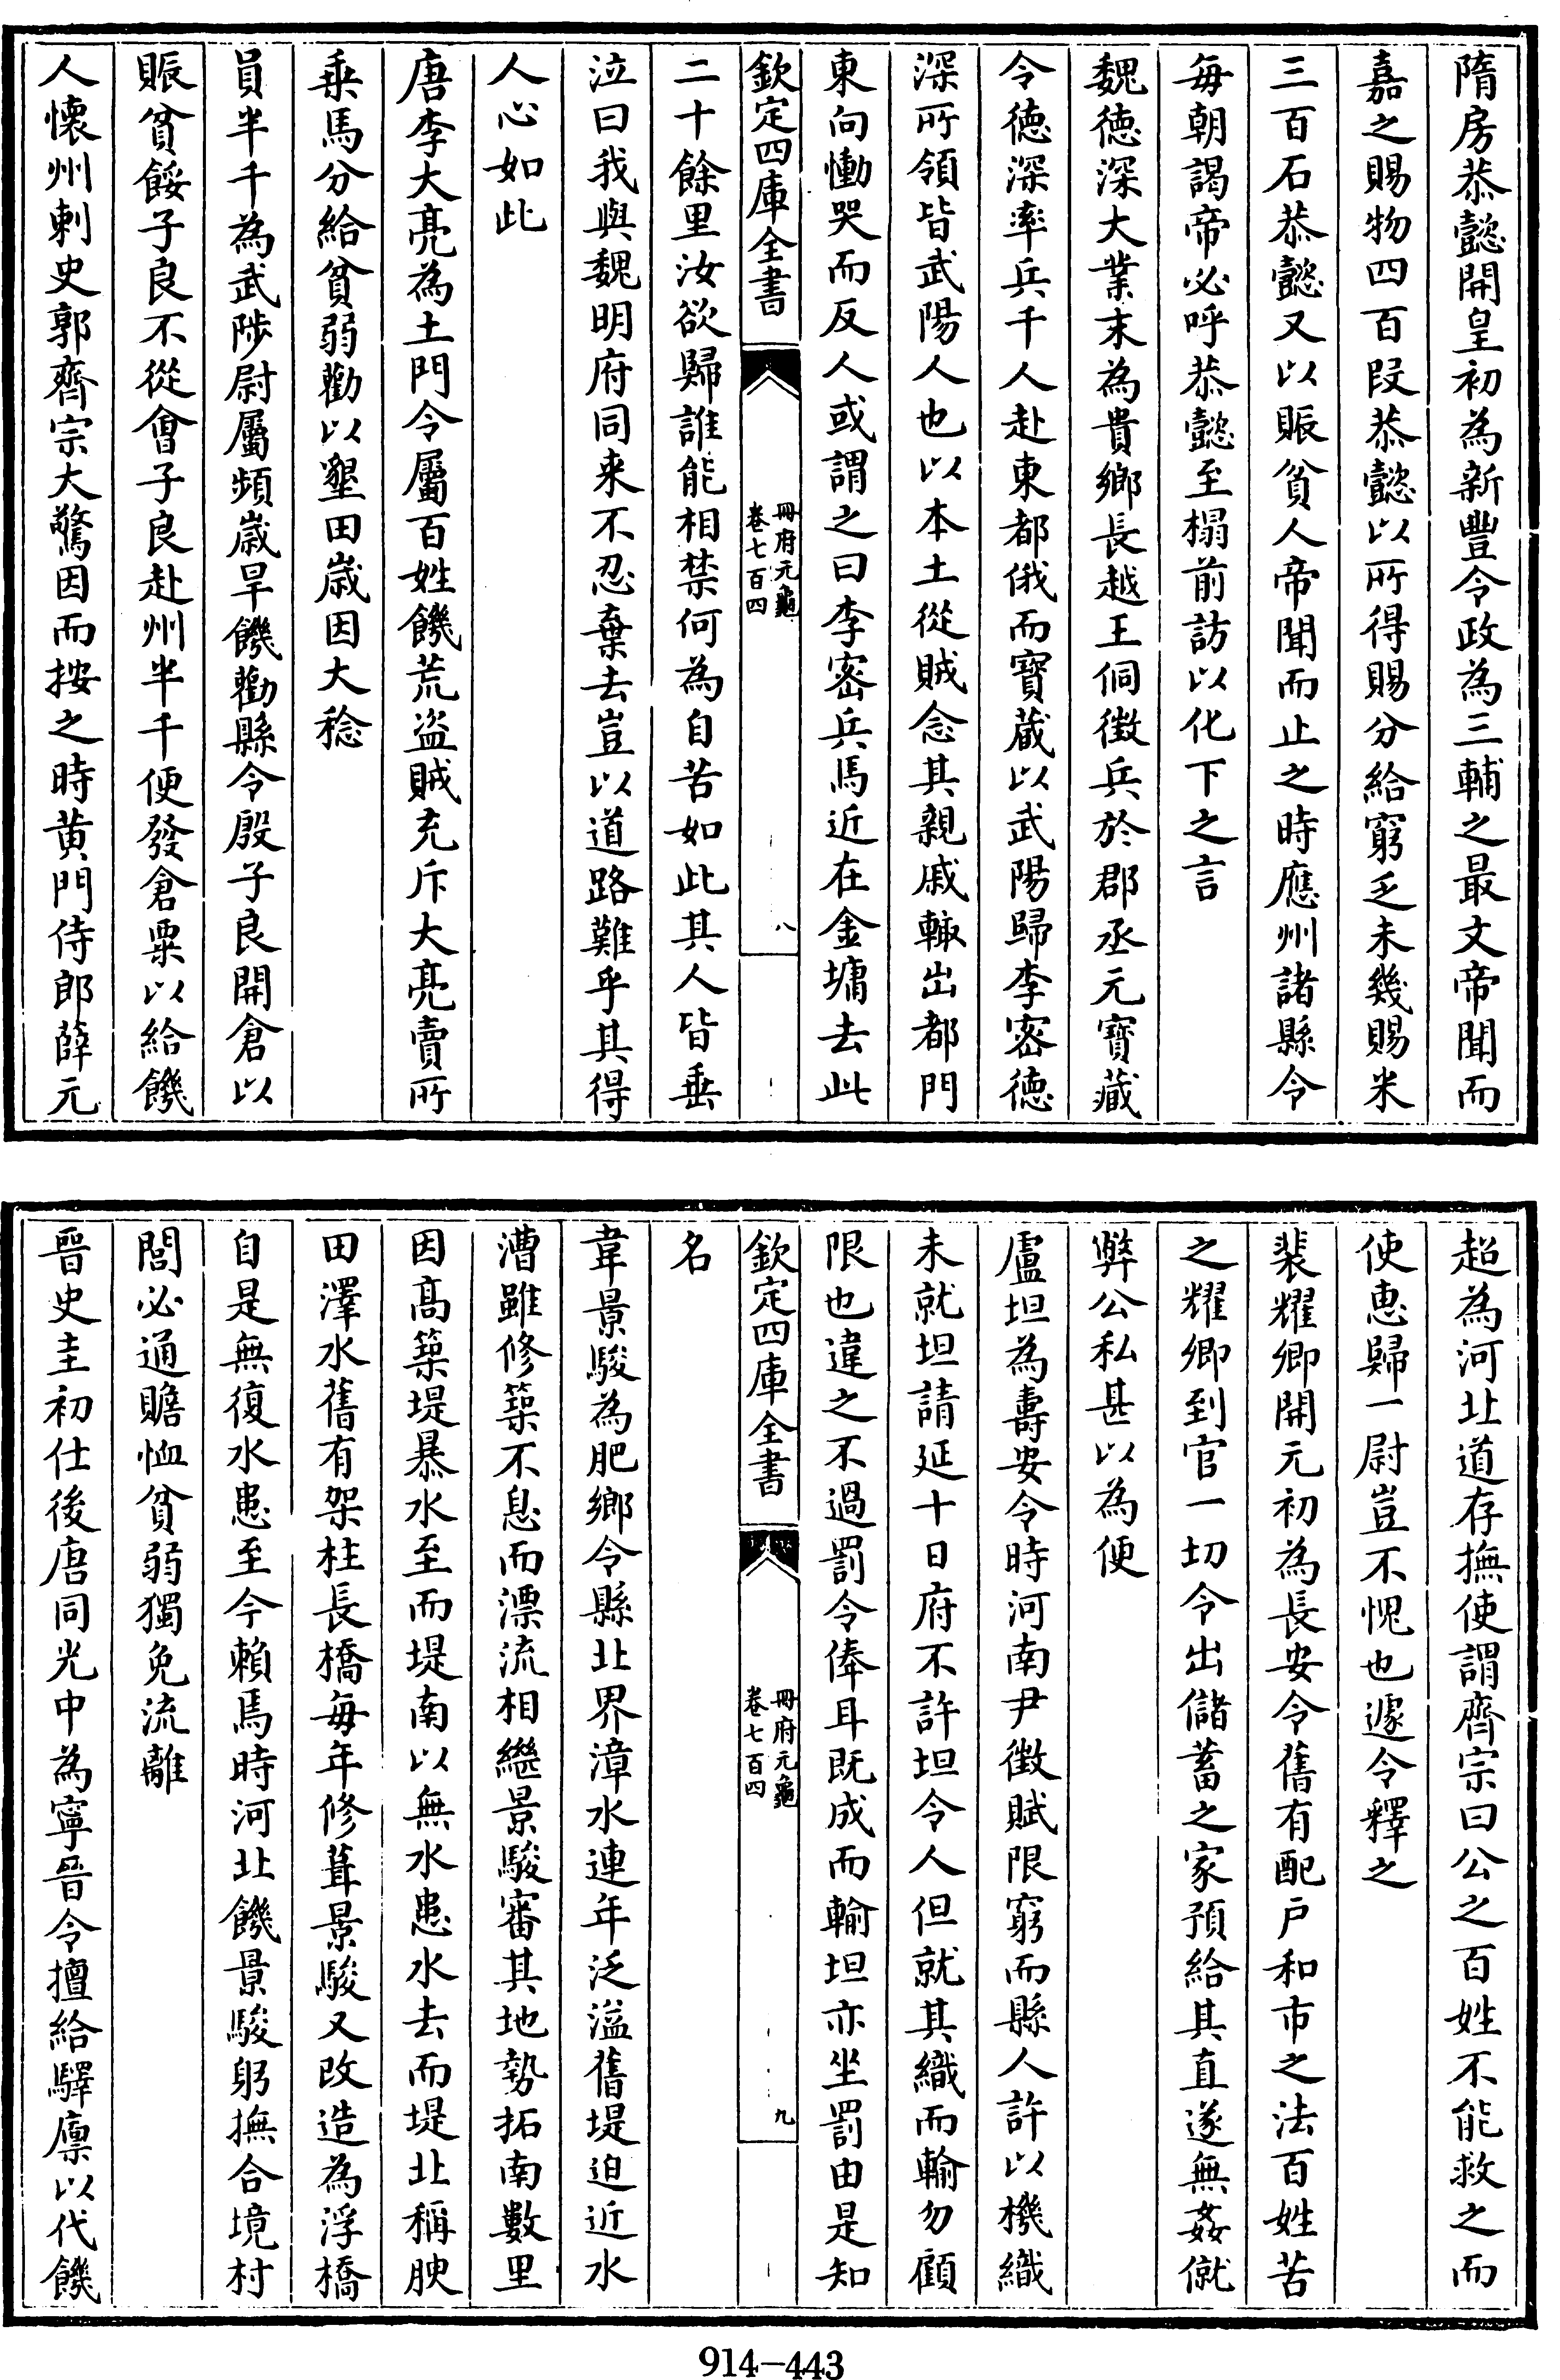 隋房恭懿開皇初為新豐令政為三輔之最文帝聞而
嘉之賜物四百段恭懿以所得賜分給窮乏未幾賜米
三百石恭懿又以賑貧人帝聞而止之時應州諸縣令
每朝謁帝必呼恭懿至榻前訪以化下之言
魏徳深大業末為貴鄉長越王侗徴兵於郡丞元寶藏
令徳深率兵千人赴東都俄而寶蔵以武陽歸李密徳
深所領皆武陽人也以本土從賊念其親戚輙出都門
東向慟哭而反人或謂之曰李密兵馬近在金墉去此
欽定四庫全書
冊府元龜
卷七百四
八
二十餘里汝欲歸誰能相禁何為自苦如此其人皆垂
泣曰我與魏明府同来不忍棄去豈以道路難乎其得
人心如此
唐李大亮為土門令屬百姓饑荒盗賊充斥大亮賣所
乗馬分給貧弱勸以墾田歳因大稔
員半千為武陟尉屬頻歳旱饑勸縣令殷子良開倉以
賑貧餒子良不從會子良赴州半千便發倉粟以給饑
人懐州刺史郭齊宗大驚因而按之時黄門侍郎薛元
超為河北道存撫使謂齊宗曰公之百姓不能救之而
使恵歸一尉豈不愧也遽令釋之
裴耀卿開元初為長安令舊有配户和市之法百姓苦
之耀卿到官一切令出儲蓄之家預給其直遂無姦僦
弊公私甚以為便
盧坦為壽安令時河南尹徴賦限窮而縣人許以機織
未就坦請延十日府不許坦令人但就其織而輸勿顧
限也違之不過罰令俸耳既成而輸坦亦坐罰由是知
欽定四庫全書
冊府元龜
卷七百四
九
名
韋景駿為肥鄉令縣北界漳水連年泛溢舊堤迫近水
漕雖修築不息而漂流相繼景駿審其地勢拓南數里
因髙築堤暴水至而堤南以無水患水去而堤北稱腴
田澤水舊有架柱長橋毎年修葺景駿又改造為浮橋
自是無復水患至今賴焉時河北饑景駿躬撫合境村
閭必通贍恤貧弱獨免流離
晉史圭初仕後唐同光中為寧晉令擅給驛廪以代饑
914-443